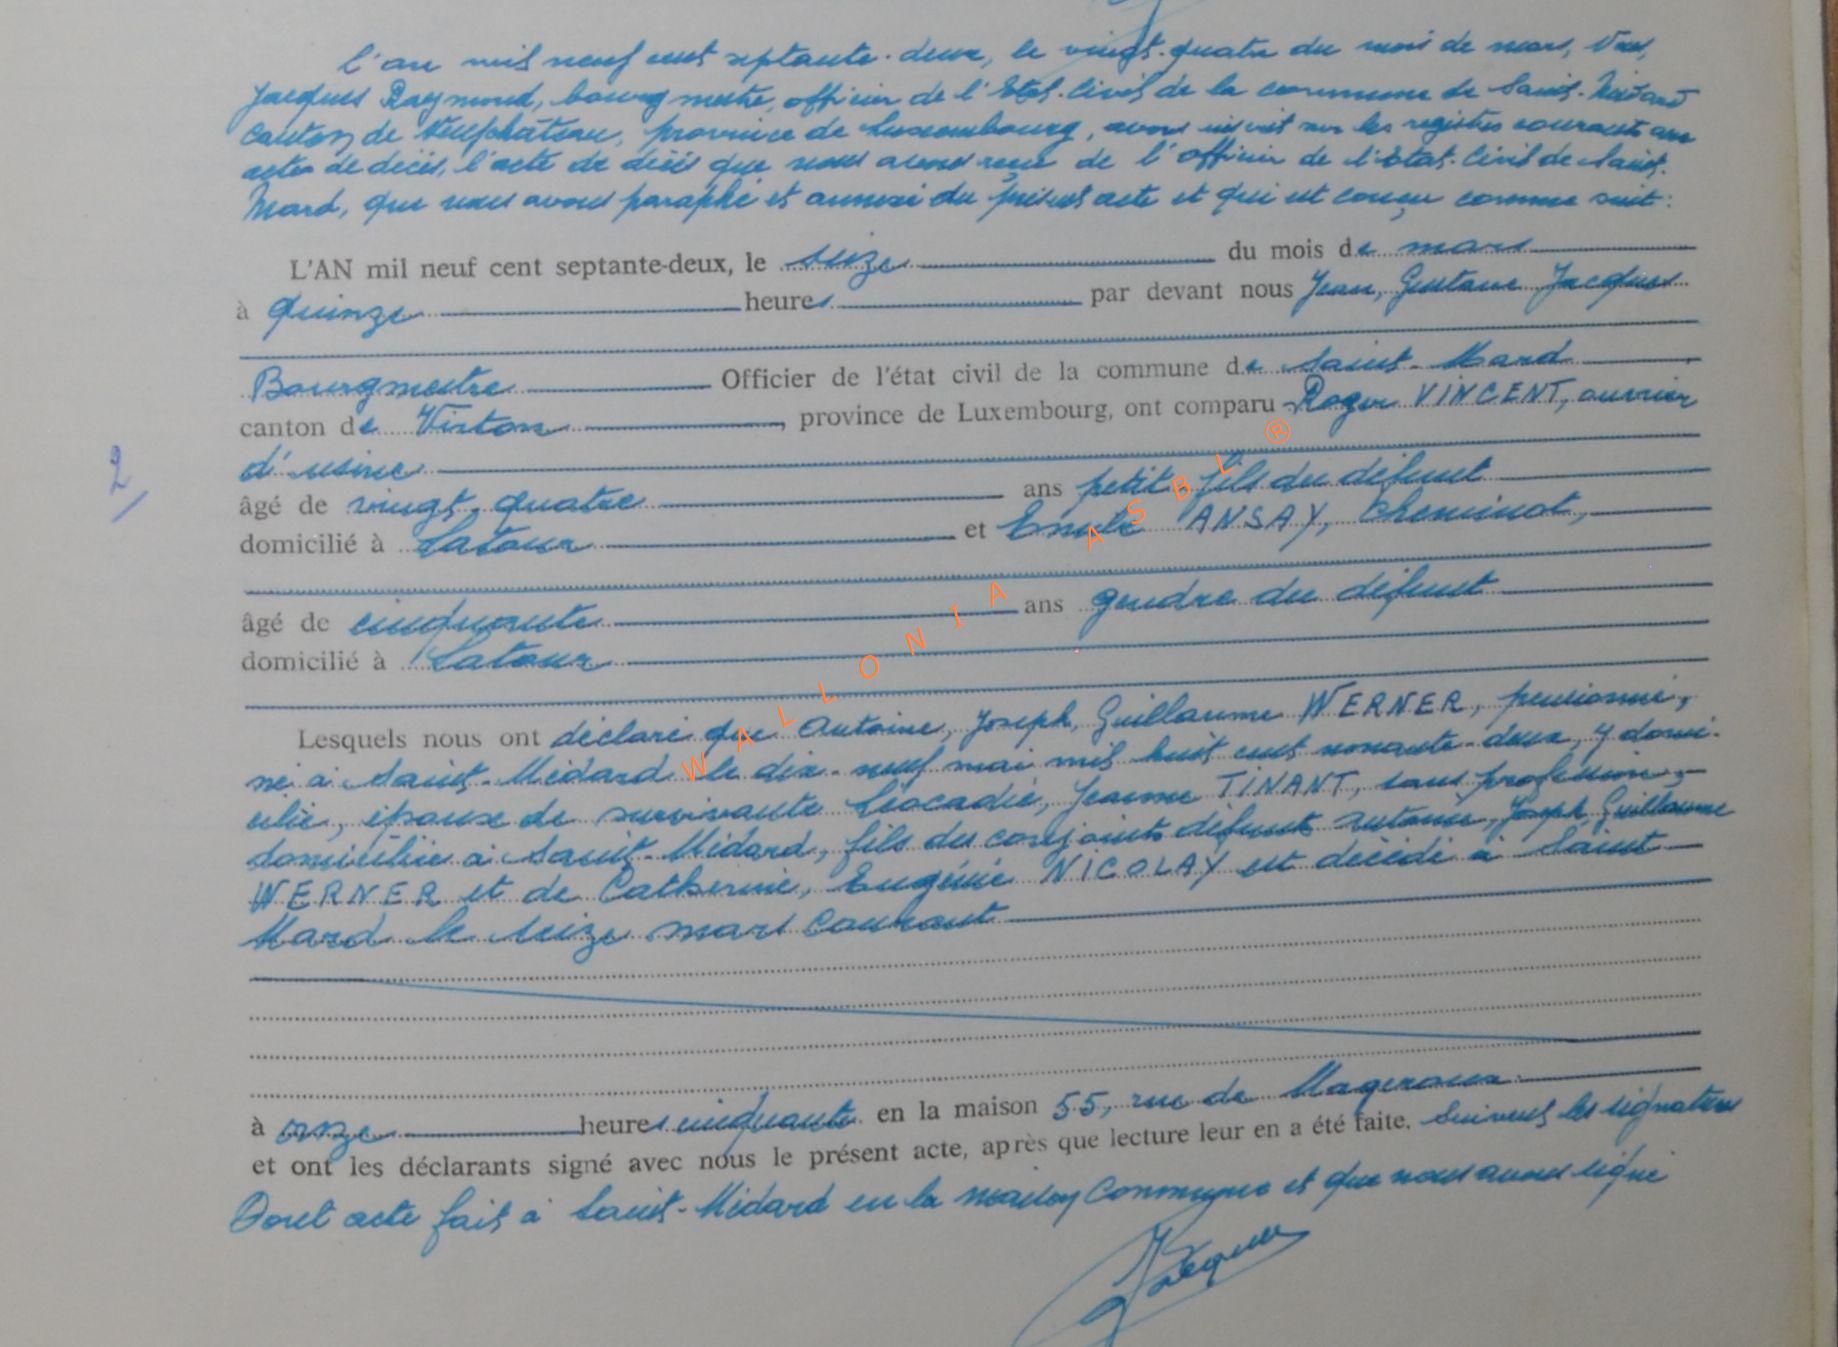 L'an mil neuf cent septante-deux, le vingt-quatre du mois de mars, Nous,
Jacques Raymond, bourgmestre, officier de l'Etat-Civil de la commune de Saint-Médard
canton de Neufchâteau, province de Luxembourg, avons inscrit sur les registres courants aux
actes de décès, l'acte de décès que nous avons reçu de l'officier de l'Etat-Civil de Saint-
Mard, que nous avons paraphé et annexé du présent acte et qui est conçu comme suit :
L'AN mil neuf cent septante-deux, le seize du mois de mars
à quinze heures par devant nous Jean, Gustave Jacques
Bourgmestre Officier de l'état civil de la commune de Saint-Mard
canton de Virton, province de Luxembourg, ont comparu Roger VINCENT, ouvrier
d'usine
2
âgé de vingt-quatre ans petit fils du défunt
domicilié à Latour et Emile ANSAY, Cheminot,
âgé de cinquante ans gendre du défunt
domicilié à Latour
Lesquels nous ont déclaré que Antoine, Joseph, Guillaume WERNER, pensionné,
né à Saint-Médard le dix-neuf mai mil huit cent nonante-deux, y domi-
cilié, époux de survivante Léocadie, Jeanne TINANT, sans profession,
domiciliée à Saint-Médard, fils du conjoints défunts Antoine, Joseph, Guillaume
WERNER et de Catherine, Eugénie NICOLAY est décédé à Saint
Mard le seize mars courant
à onze heures cinquante en la maison 55, rue de Mageroux
et ont les déclarants signé avec nous le présent acte, après que lecture leur en a été faite. Suivent les signatures
Dont acte fait à Saint-Médard en la maison Commune et que nous avons signé
Jacques
WALLONIA ASBL ®